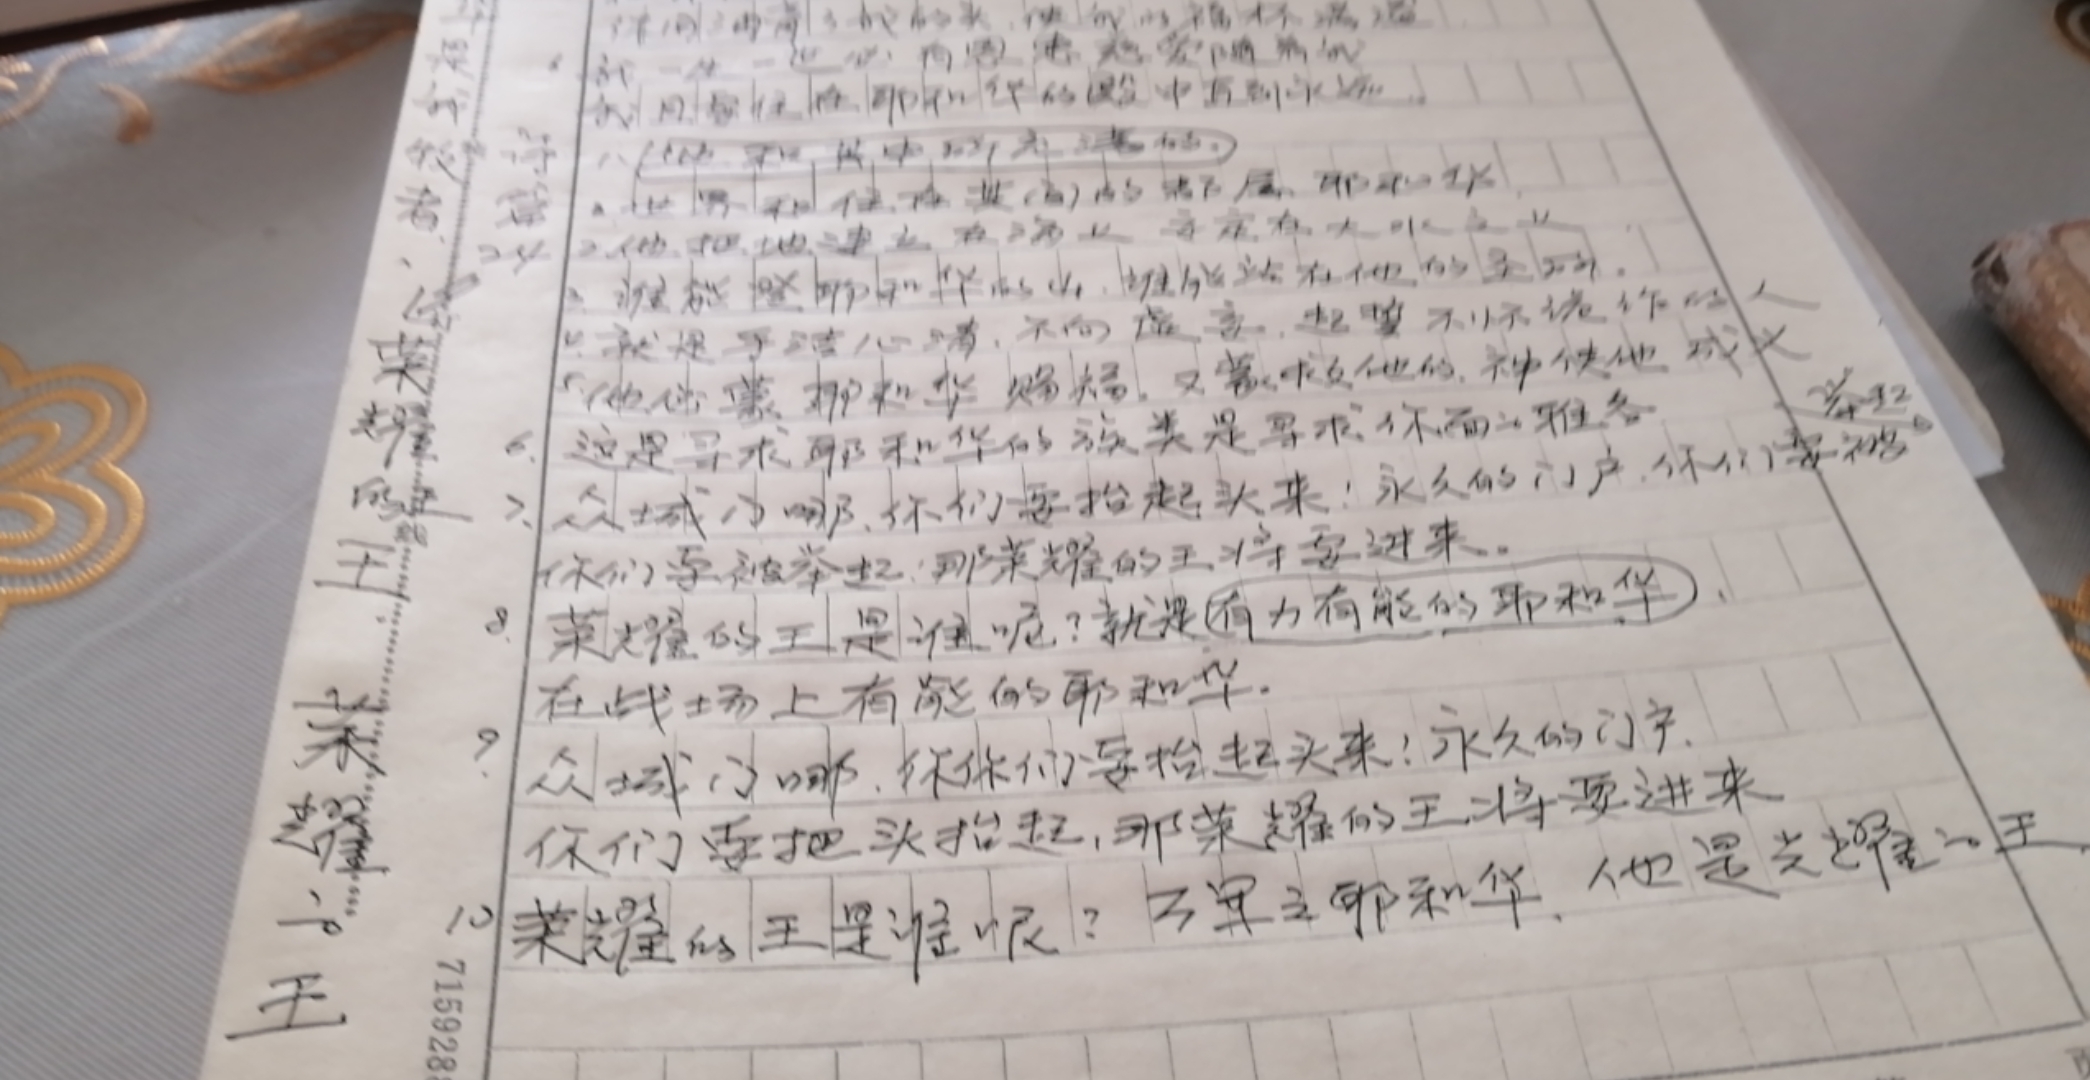 我一生一世必有恩惠慈爱随着我
我且要住在耶和华的殿中直到永远.
1. 地和其中所充满的.
世界和住在其(间)的都属耶和华
诗篇
24
2. 他把地建立在海上 安定在大水之上
3. 谁能登耶和华的山. 谁能站在他的圣所.
4. 就是手洁心清, 不向虚妄. 起誓不怀诡诈的人
5. 他必蒙耶和华赐福. 又蒙救他的神使他成义
6. 这是寻求耶和华的族类是寻求你面的雅各
7. 众城门哪, 你们要抬起头来! 永久的门户, 你们要被
举起
你们要被举起: 那荣耀的王将要进来.
8. 荣耀的王是谁呢? 就是有力有能的耶和华.
在战场上有能的耶和华.
9. 众城门哪, 你你们要抬起头来! 永久的门户.
你们要把头抬起, 那荣耀的王将要进来
10 荣耀的王是谁呢? 万军之耶和华. 他是荣耀的王
荣耀的王, 荣耀的王
715928